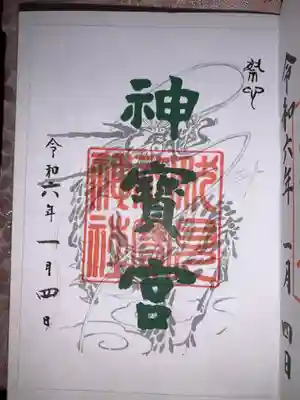 神寶宮
令和六年 一月四日
令和六年 一月四日